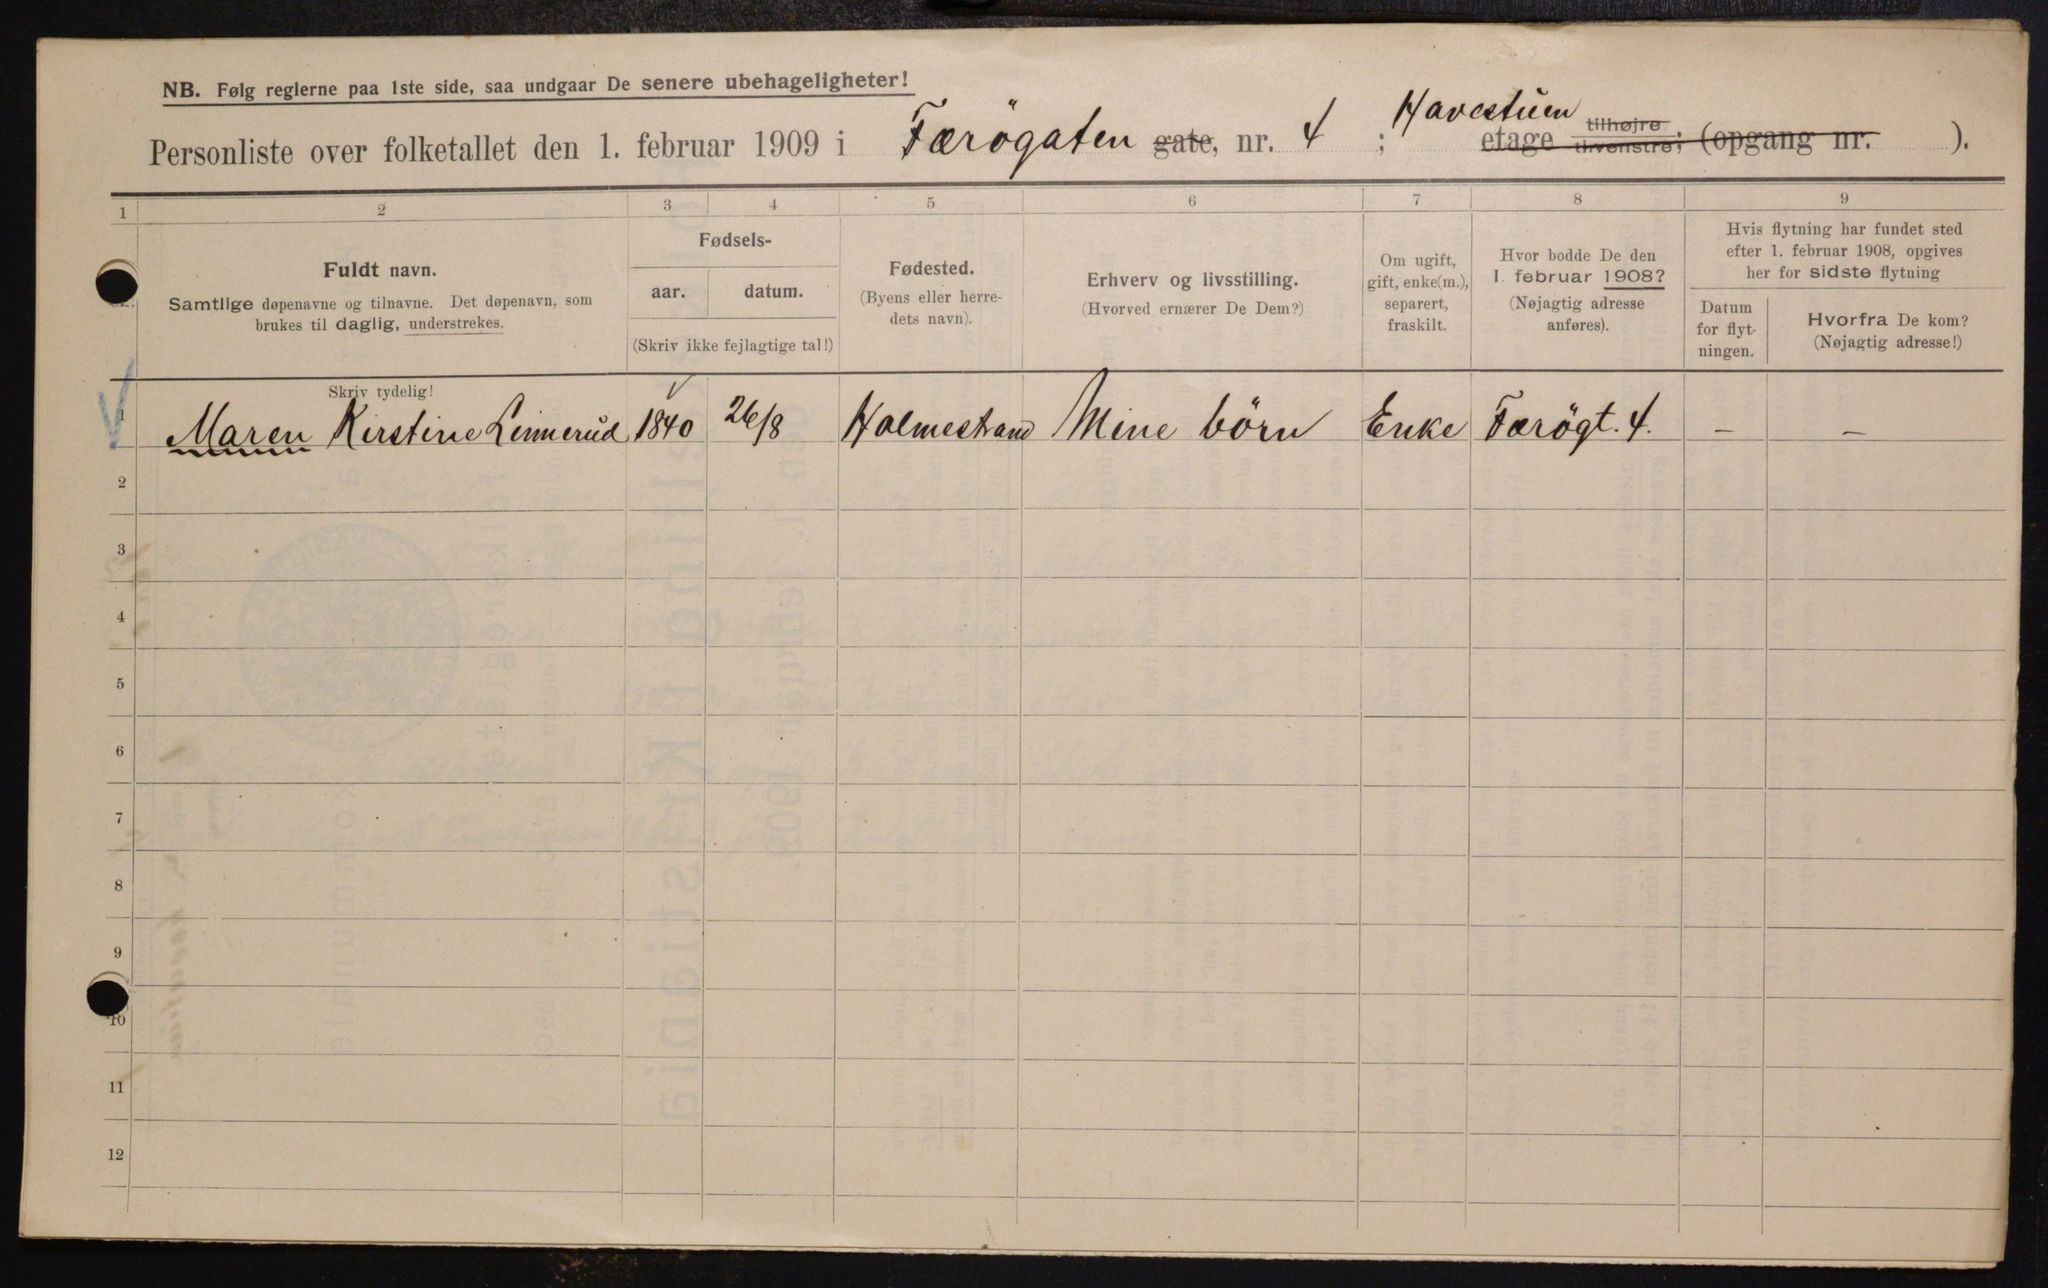 NB. Følg reglerne paa 1ste side, saa undgaar De senere ubehageligheter!
Personliste over folketallet den 1. februar 1909 i Færögaten gate, nr. 4 ; Havestuen etage tilhøjre tilvenstre; (opgang nr. ).
1 2 3 4 5 6 7 8 9
Fuldt navn.
Samtlige døpenavne og tilnavne. Det døpenavn, som
brukes til daglig, understrekes.
Skriv tydelig!
Fødsels-
aar. datum.
(Skriv ikke fejlagtige tal!)
Fødested.
(Byens eller herre-
dets navn).
Erhverv og livsstilling.
(Hvorved ernærer De Dem?)
Om ugift,
gift, enke(m.),
separert,
fraskilt.
Hvor bodde De den
1. februar 1908?
(Nøjagtig adresse
anføres).
Hvis flytning har fundet sted
efter 1. februar 1908, opgives
her for sidste flytning
Datum
for flyt-
ningen.
Hvorfra De kom?
(Nøjagtig adresse!)
1 Maren Kirstine Linnerud 1840 26/8 Holmestrand Mine börn Enke Færögt. 4. — —
2
3
4
5
6
7
8
9
10
11
12